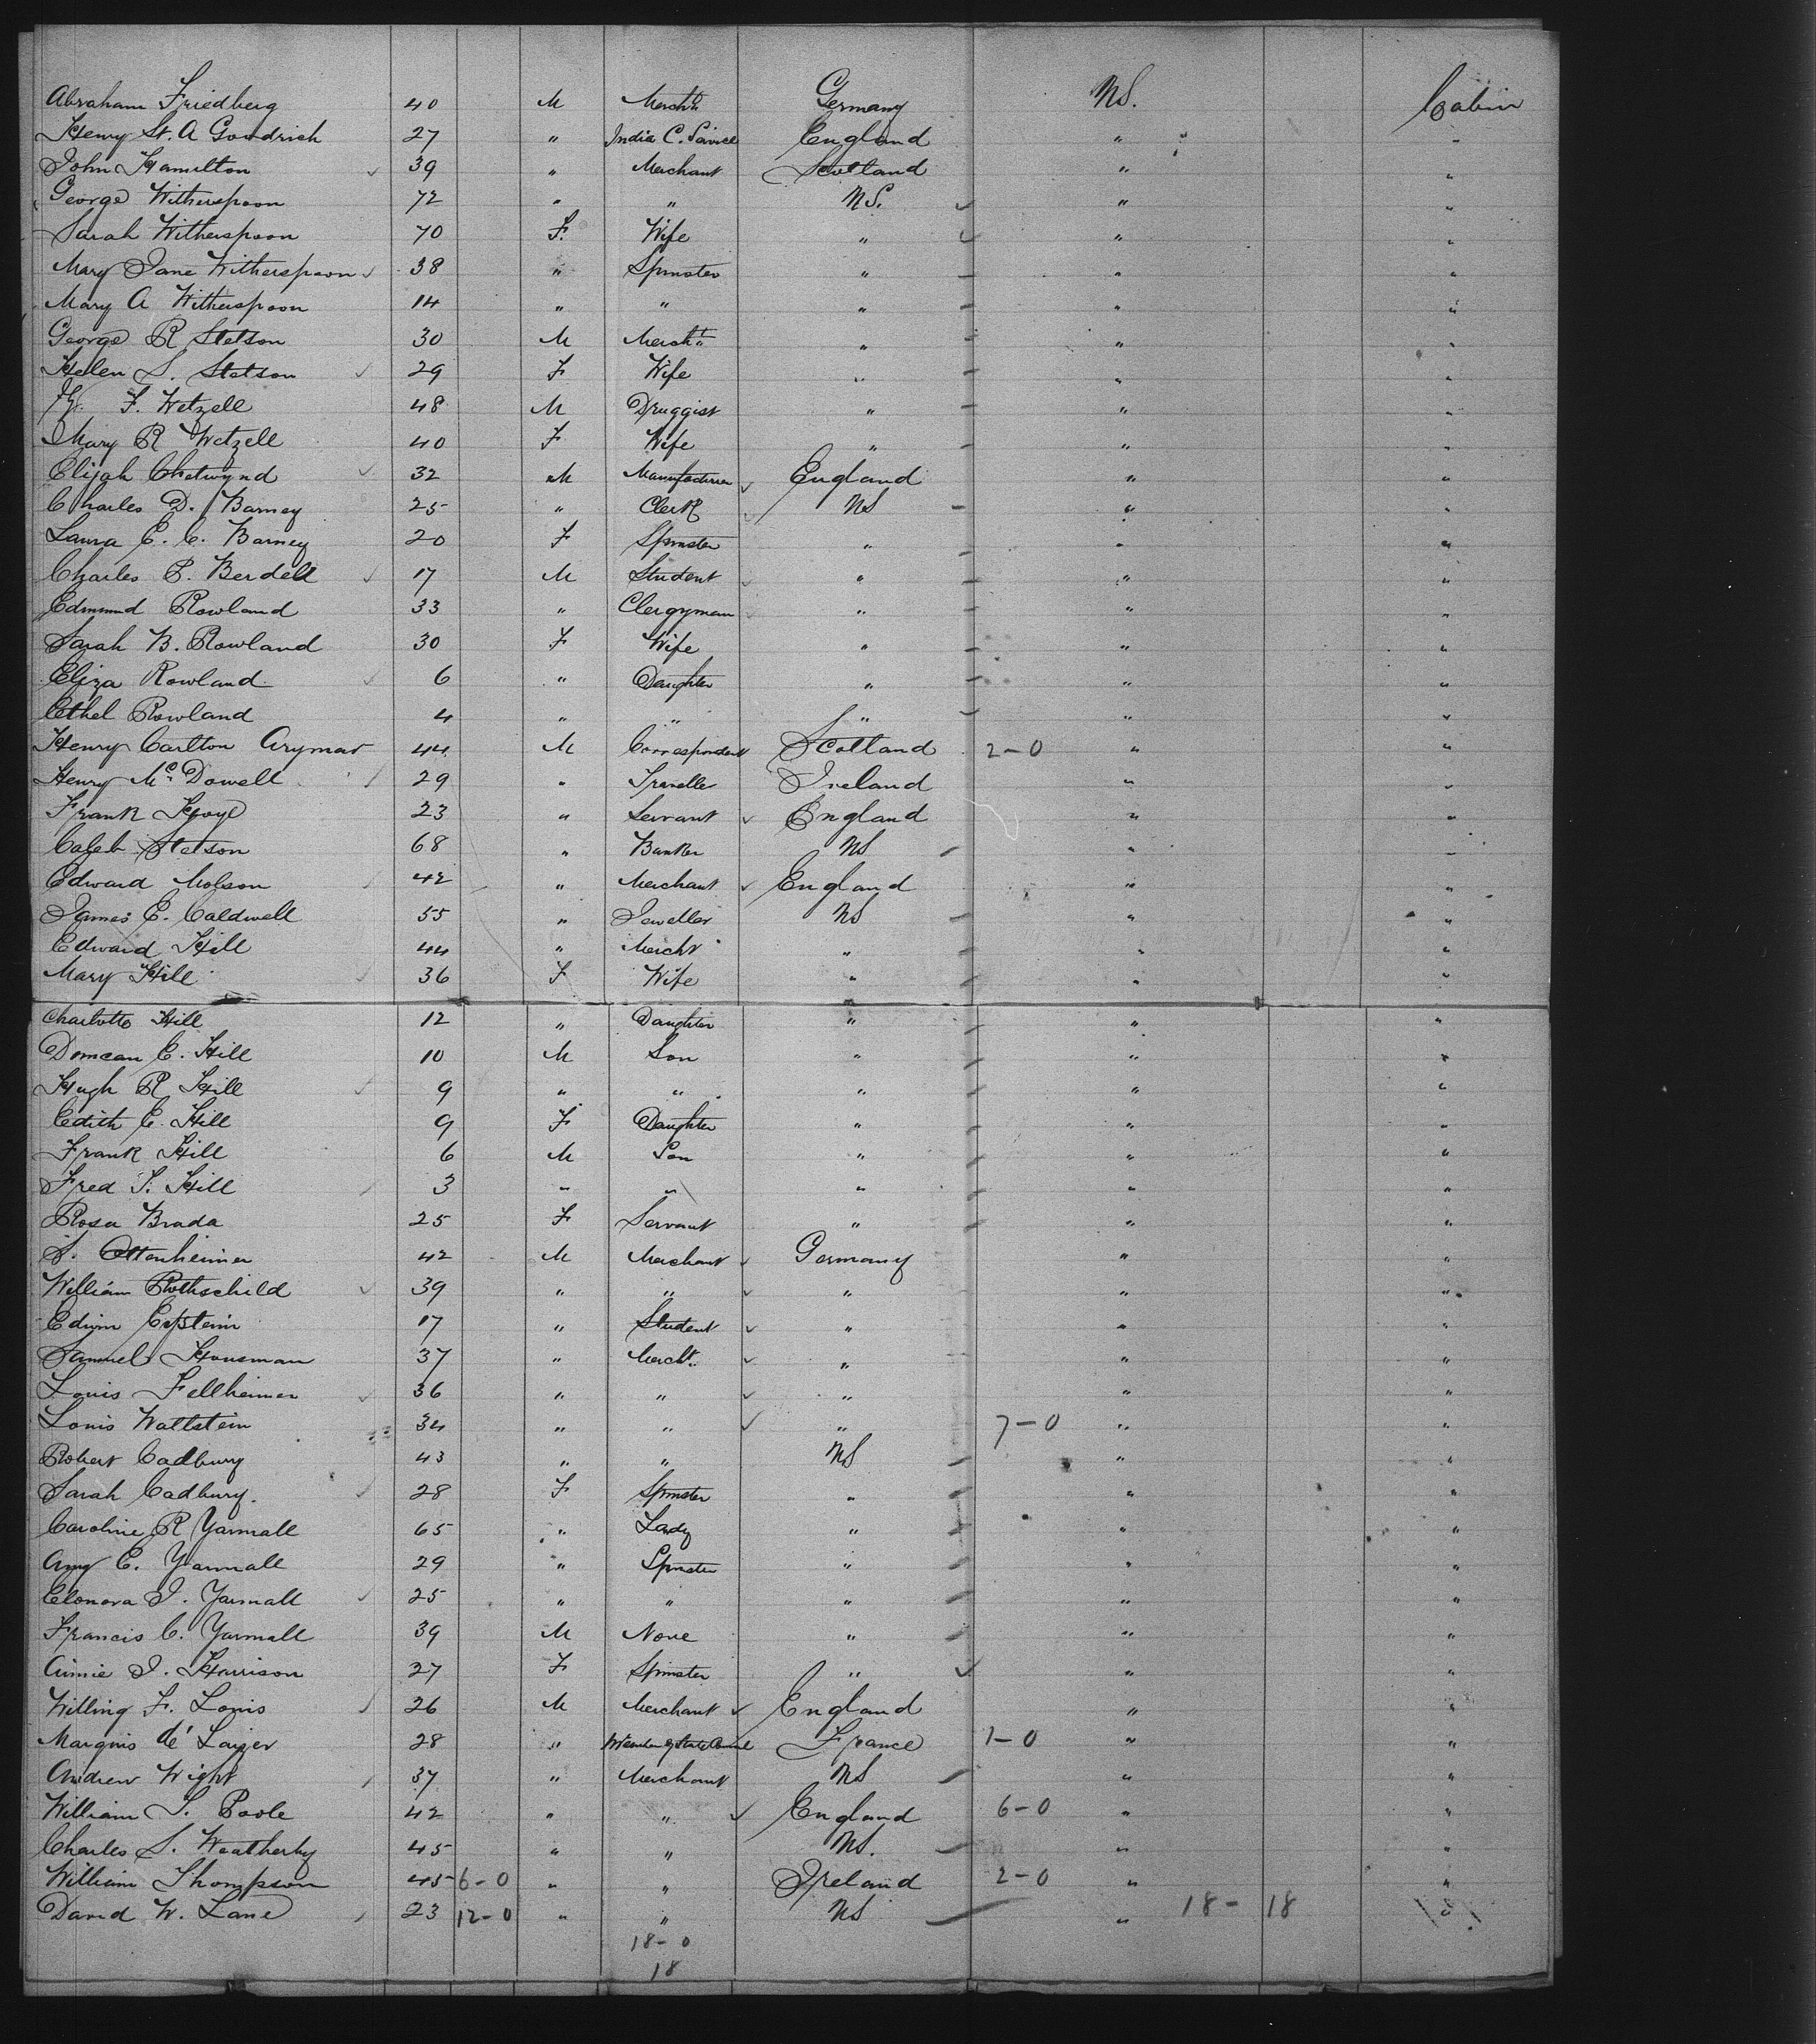 Abraham Friedberg 40 M Merch't Germany NS. Cabin
Henry St. A Goodrich 27 " India C. Service England " "
John Hamilton 39 " Merchant Scotland " "
George Witherspoon 72 " " NS. " "
Sarah Witherspoon 70 F. Wife " " "
Mary Jane Witherspoon 38 " Spinster " " "
Mary A Witherspoon 14 " " " " "
George R Stetson 30 M Merch't " " "
Helen S. Stetson 29 F Wife " " "
F. Wetzell 48 M Druggist " " "
Mary R Wetzell 40 F Wife " " "
Elijah Chetwynd 32 M Manufacturer England " "
Charles D. Barney 25 " Clerk NS " "
Laura E. C. Barney 20 F Spinster " " "
Charles P. Berdell 17 M Student " " "
Edmund Rowland 33 " Clergyman " " "
Sarah B. Rowland 30 F Wife " " "
Eliza Rowland 6 " Daughter " " "
Ethel Rowland 4 " " " " "
Henry Carlton 44 M Correspondent Scotland 2-0 " "
Henry McDowell 29 " Traveller Ireland " "
Frank 23 " Servant England " "
Caleb Stetson 68 " Banker NS " "
Edward Molson 42 " Merchant England " "
James E. Caldwell 55 " Jeweller NS " "
Edward Hill 44 " Mercht " " "
Mary Hill 36 F Wife " " "
Charlotte Hill 12 " Daughter " " "
Duncan C. Hill 10 M Son " " "
Hugh R Hill 9 " " " " "
Edith C. Hill 9 F Daughter " " "
Frank Hill 6 M Son " " "
Fred S. Hill 3 " " " " "
Rosa Brada 25 F Servant " " "
S. Ottenheimer 42 M Merchant Germany " "
William Rothschild 39 " " " " "
Edwin Epstein 17 " Student " " "
Samuel Housman 37 " Mercht. " " "
Louis Fellheimer 36 " " " " "
Louis Wallstein 34 " " " 7-0 " "
Robert Cadbury 43 " " NS " "
Sarah Cadbury. 28 F Spinster " " "
Caroline R Yarnall 65 " Lady " " "
Amy C. Yarnall 29 " Spinster " " "
Elonora I. Yarnall 25 " " " " "
Francis C. Yarnall 39 M None " " "
Annie I. Harrison 27 F Spinster " " "
Willing F. Lonis 26 M Merchant England " "
Marquis de Laizer 28 " France 1-0 " "
Andrew Wight 37 " Merchant NS " "
William S. Poole 42 " " England 6-0 " "
Charles S. Weatherby 45 " " NS. " "
William Thompson 45 6-0 " " Ireland 2-0 " "
David W. Lane 23 12-0 " " NS " 18- 18 "
18-0
18